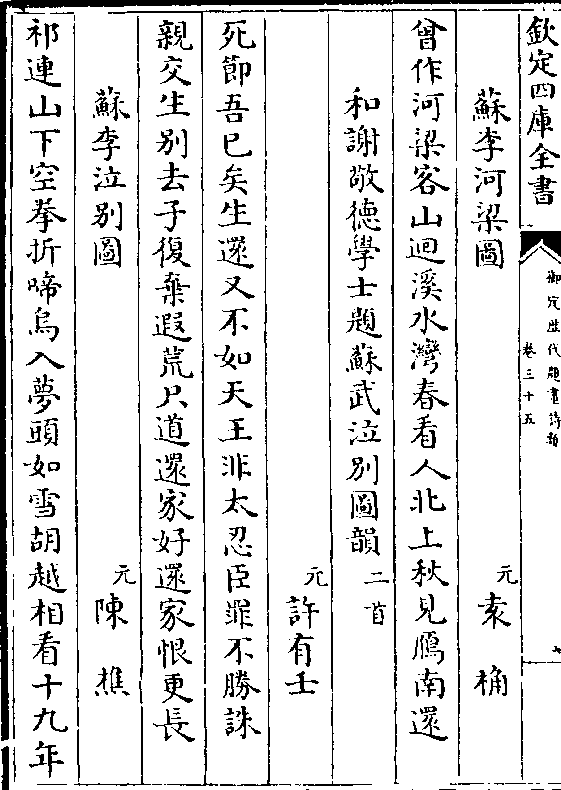 欽定四庫全書
御定歴代題畫詩類
卷三十五
七
蘇李河梁圖
元袁桷
曾作河梁客山迴溪水灣春看人北上秋見鴈南還
和謝敬德學士題蘇武泣别圖韻二首
元許有壬
死節吾已矣生還又不如天王非太忍臣罪不勝誅
親交生别去子復棄遐荒只道還家好還家恨更長
蘇李泣别圖
元陳樵
祁連山下空拳折啼烏入夢頭如雪胡越相看十九年